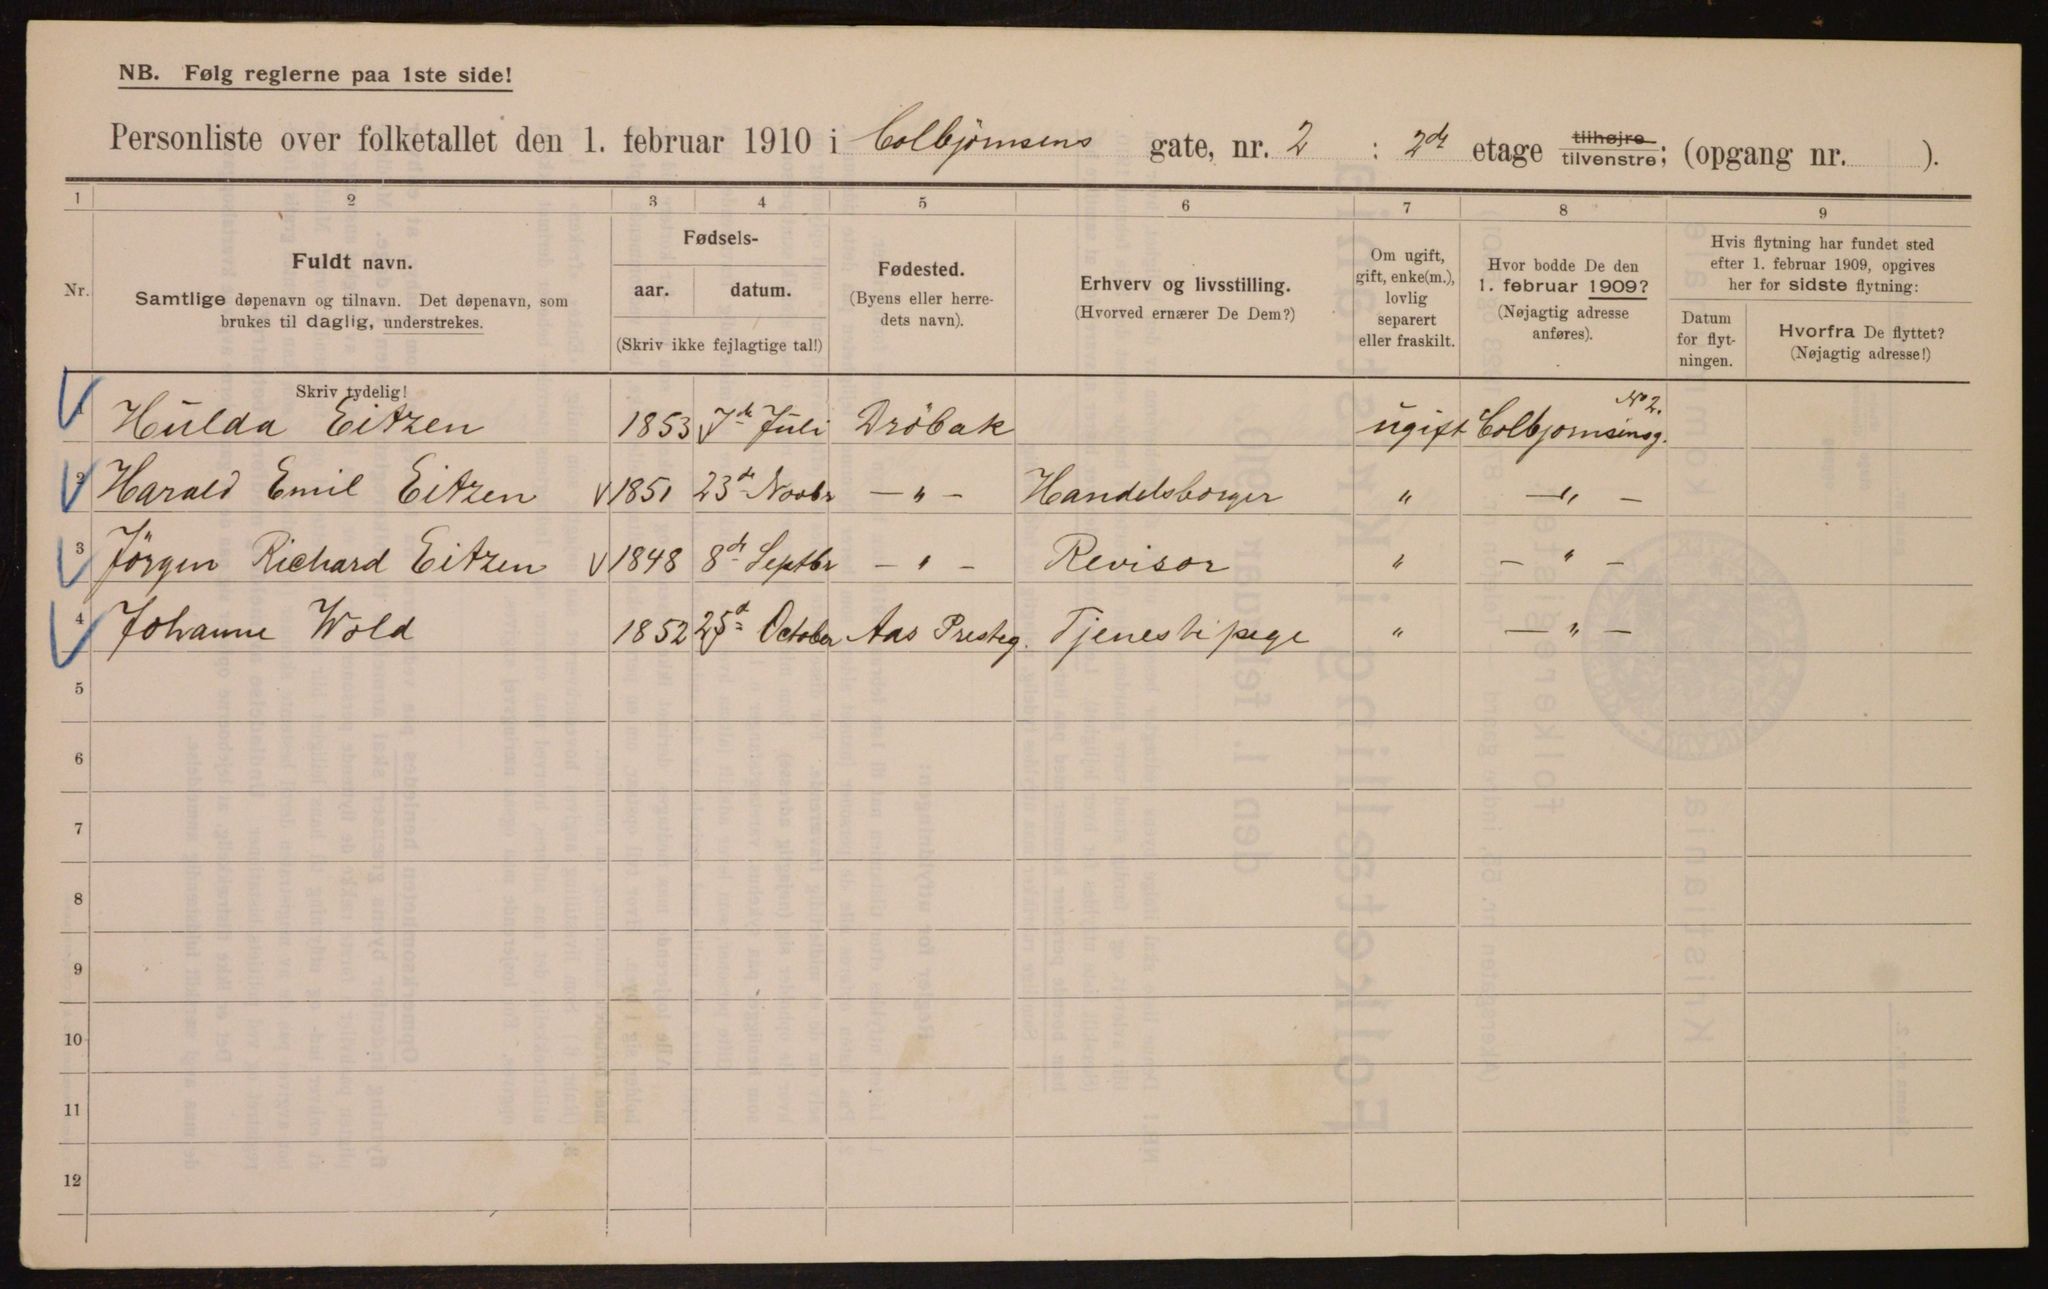 NB. Følg reglerne paa 1ste side!
Personliste over folketallet den 1. februar 1910 i Colbjørnsens gate, nr. 2 : 2de etage tilhøjre tilvenstre; (opgang nr. ).
1 2 3 4 5 6 7 8 9
Nr.
Fuldt navn.
Samtlige døpenavn og tilnavn. Det døpenavn, som
brukes til daglig, understrekes.
Fødsels-
aar. datum.
(Skriv ikke fejlagtige tal!)
Fødested.
(Byens eller herre-
dets navn).
Erhverv og livsstilling.
(Hvorved ernærer De Dem?)
Om ugift,
gift, enke(m.),
lovlig
separert
eller fraskilt.
Hvor bodde De den
1. februar 1909?
(Nøjagtig adresse
anføres).
Hvis flytning har fundet sted
efter 1. februar 1909, opgives
her for sidste flytning:
Datum
for flyt-
ningen.
Hvorfra De flyttet?
(Nøjagtig adresse!)
Skriv tydelig!
1 Hulda Eitzen 1853 7de Juli Dröbak ugift Colbjornsensg. No 2.
2 Harald Emil Eitzen 1851 23de Novbr — " — Handelsborger " — " —
3 Jörgen Richard Eitzen 1848 8de Septbr — " — Revisor " — " —
4 Johanne Wold 1852 25d October Aas Presteg. Tjenestepige " — " —
5
6
7
8
9
10
11
12